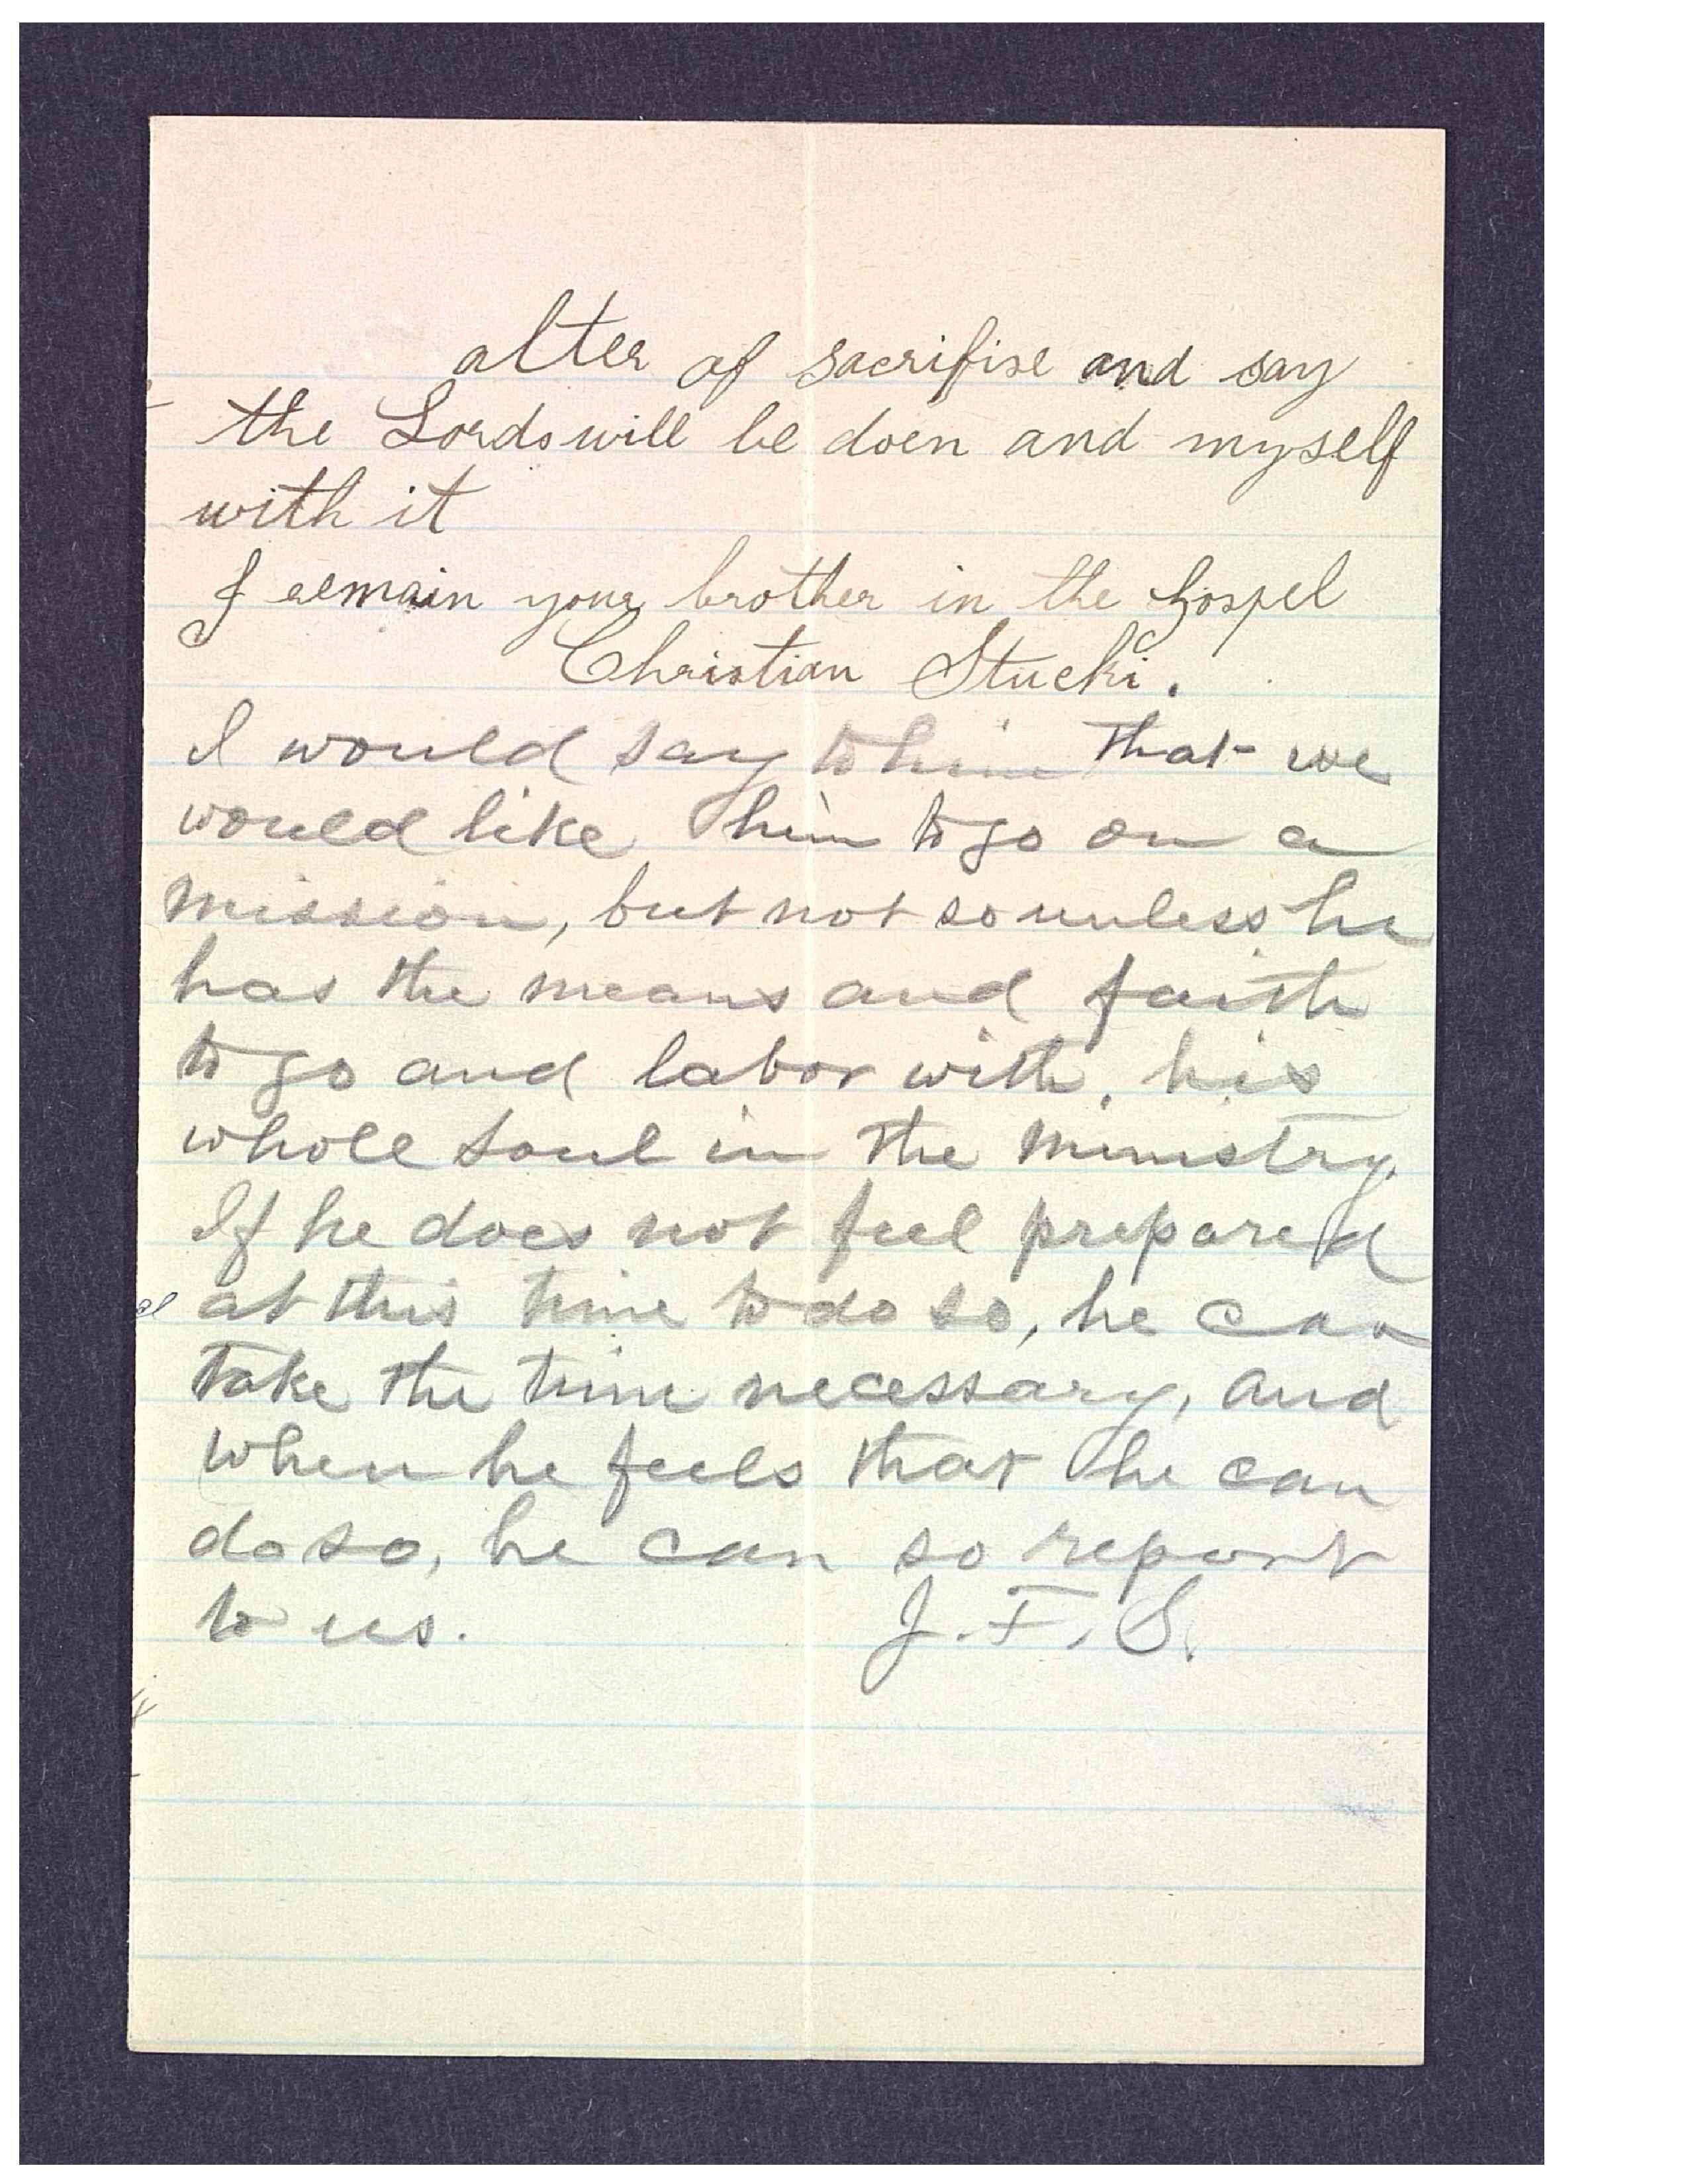 alter of sacrifise and say
the Lords will be doen and myself
with it
I remain your brother in the Gospel
Christian Stucki.
I would say to him that we
would like him to go on a
mission, but not so unless he
has the means and faith
to go and labor with his
whole soul in the ministry.
If he does not feel prepared
at this time to do so, he can
take the time necessary, and
when he feels that he can
do so, he can so report
to us. J. F. S.